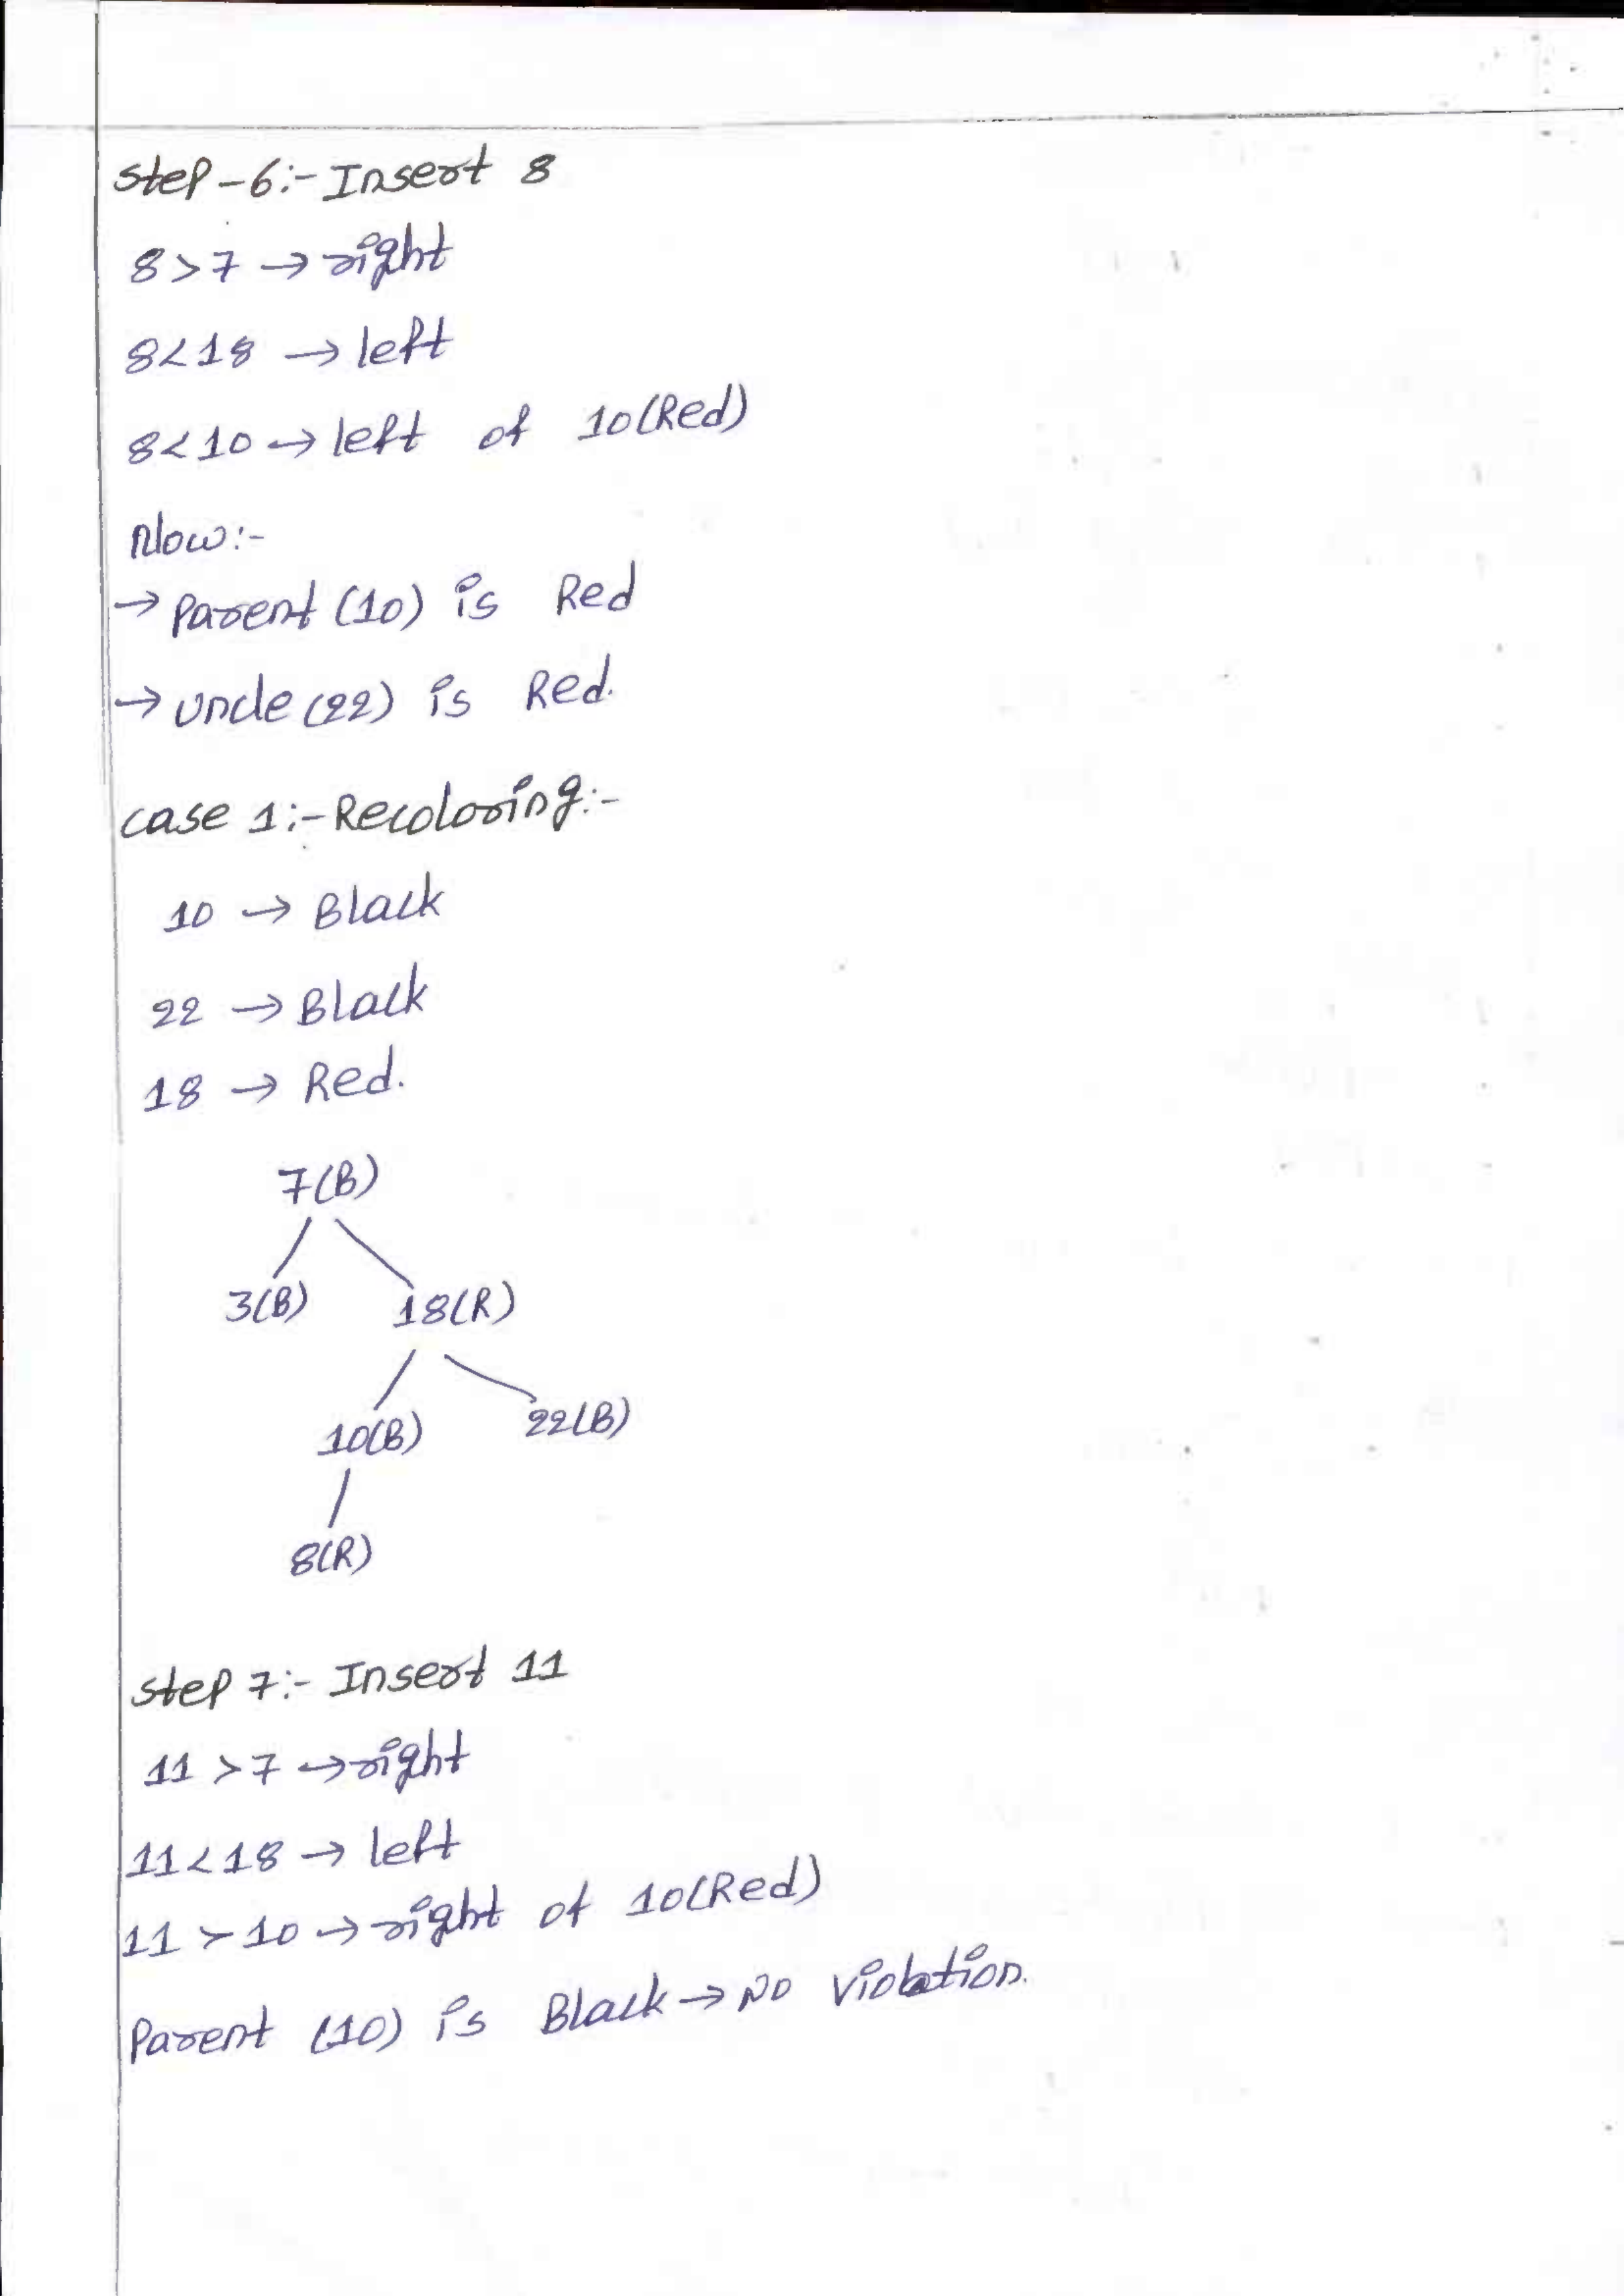 Step-6:- Insert 8
8>7 → right
8<18 → left
8<10 → left of 10(Red)
Now:-
→ Parent (10) is Red
→ Uncle (22) is Red.
Case 1:- Recoloring:-
10 → Black
22 → Black
18 → Red.
7(B)
3(B) 18(R)
10(B) 22(B)
8(R)
Step 7:- Insert 11
11 >7 → right
11<18 → left
11 > 10 → right of 10(Red)
Parent (10) is Black → No violation.